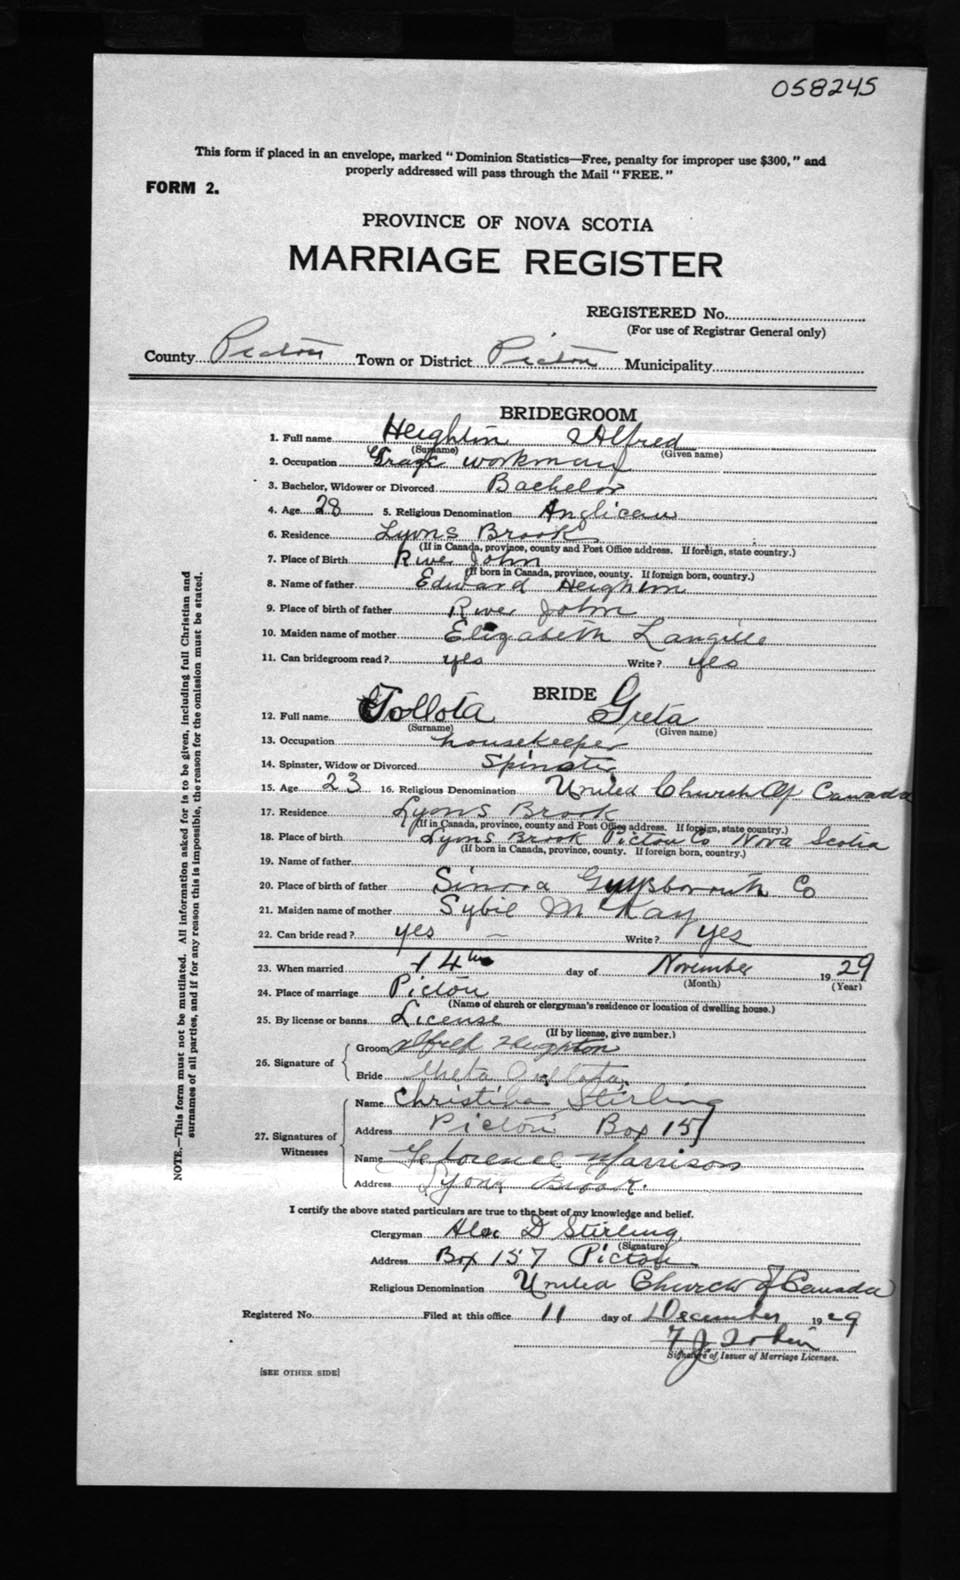 058245
This form if placed in an envelope, marked "Dominion Statistics—Free, penalty for improper use $300," and
properly addressed will pass through the Mail "FREE."
FORM 2.
PROVINCE OF NOVA SCOTIA
MARRIAGE REGISTER
REGISTERED No.
(For use of Registrar General only)
County Pictou Town or District Pictou Municipality
BRIDEGROOM
1. Full name Heighton Alfred
(Surname) (Given name)
2. Occupation workman
3. Bachelor, Widower or Divorced Bachelor
4. Age 28 5. Religious Denomination Anglican
6. Residence Lyons Brook
(If in Canada, province, county and Post Office address. If foreign, state country.)
7. Place of Birth River John
(If born in Canada, province, county. If foreign born, country.)
8. Name of father Edward Heighton
9. Place of birth of father River John
10. Maiden name of mother Elizabeth Langille
11. Can bridegroom read? yes Write? yes
BRIDE
12. Full name Tollota Greta
(Surname) (Given name)
13. Occupation housekeeper
14. Spinster, Widow or Divorced Spinster
15. Age 23 16. Religious Denomination United Church of Canada
17. Residence Lyons Brook
(If in Canada, province, county and Post Office address. If foreign, state country.)
18. Place of birth Lyons Brook Pictou Co Nova Scotia
(If born in Canada, province, county. If foreign born, country.)
19. Name of father
20. Place of birth of father Guysborouth Co
21. Maiden name of mother Sybil McKay
22. Can bride read? yes Write? yes
23. When married 14th day of November 1929
(Month) (Year)
24. Place of marriage Pictou
(Name of church or clergyman's residence or location of dwelling house.)
25. By license or banns License
(If by license, give number.)
26. Signature of
Groom Alfred Heighton
Bride Greta
27. Signatures of Witnesses
Name Christina Stirling
Address Pictou Box 157
Name Morrison
Address Lyons Brook.
I certify the above stated particulars are true to the best of my knowledge and belief.
Clergyman Alex D Stirling
(Signature)
Address Box 157 Pictou
Religious Denomination United Church of Canada
Registered No. Filed at this office 11 day of December 1929
Signature of Issuer of Marriage Licenses.
[SEE OTHER SIDE]
NOTE.—This form must not be mutilated. All information asked for is to be given, including full Christian and
surnames of all parties, and if for any reason this is impossible, the reason for the omission must be stated.